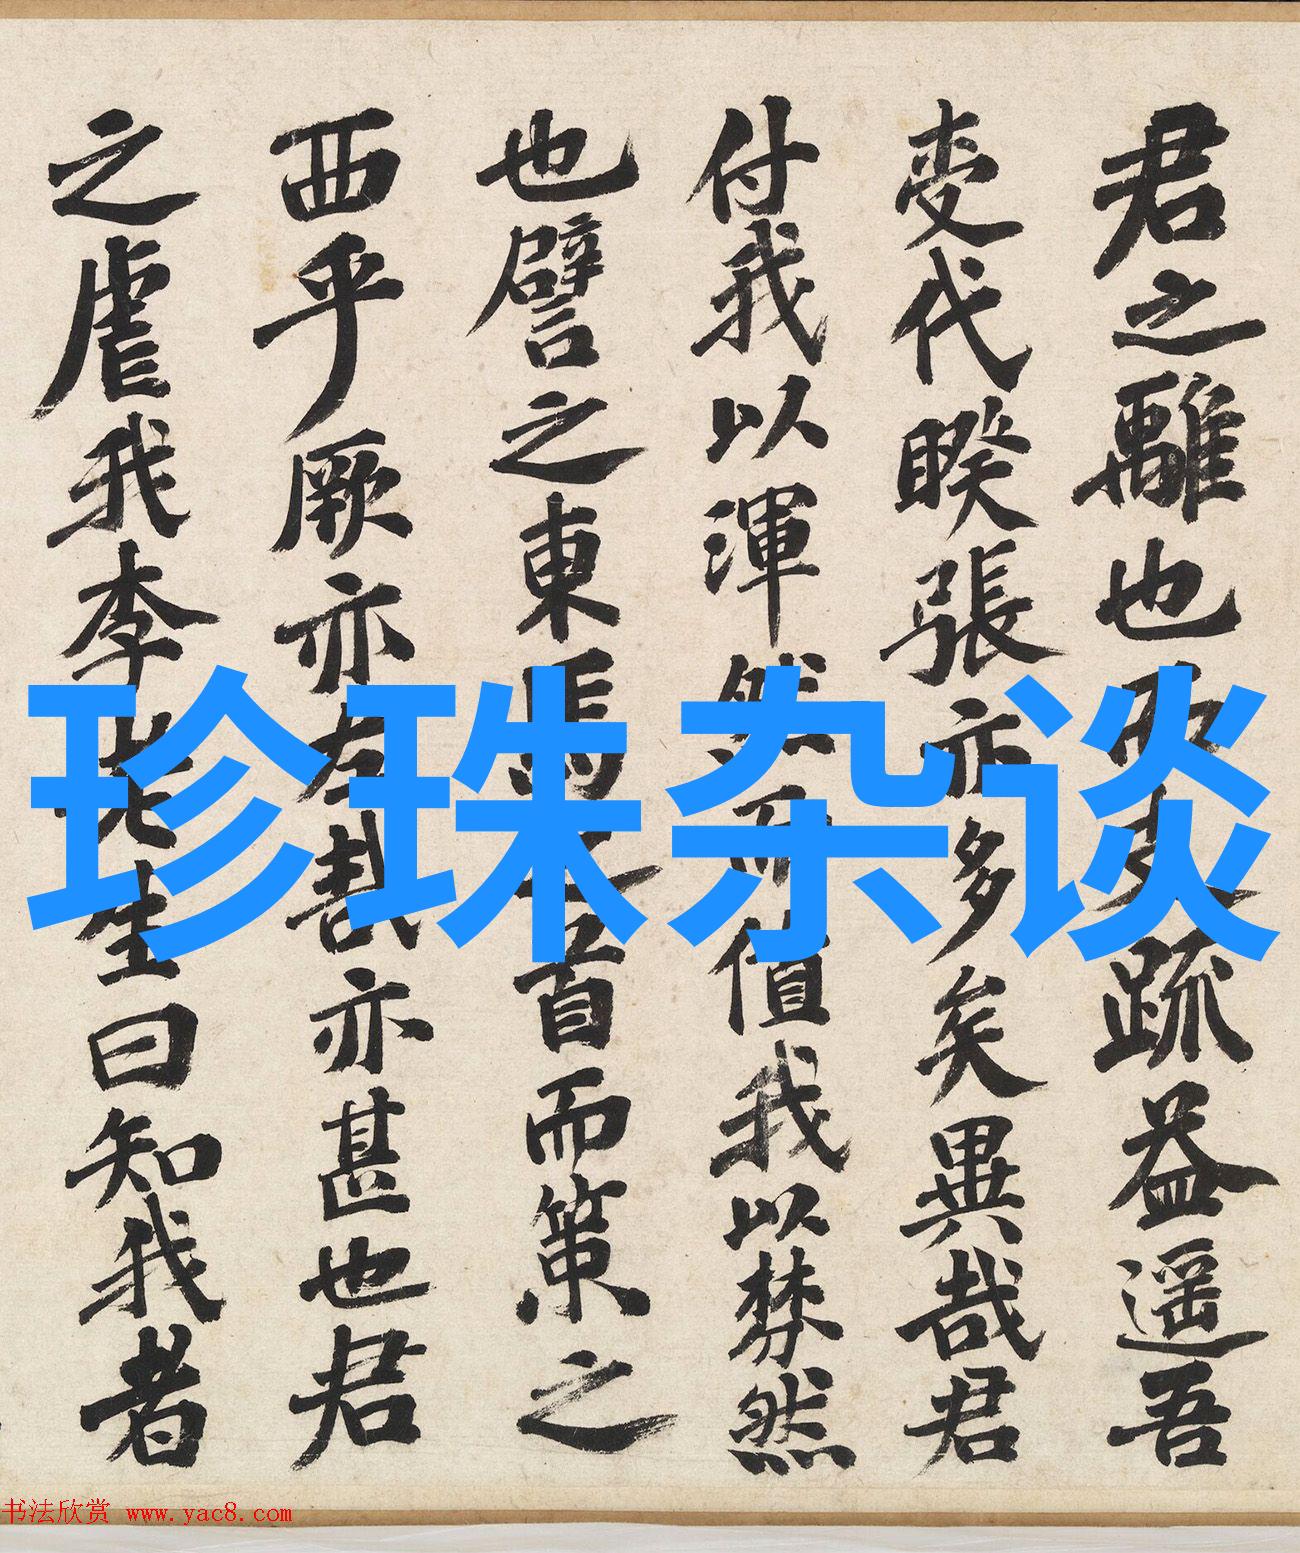 君之離也取友疏益遥吾
变代睽張亦多矣異哉君
付我以渾然而值我以棼然
也譬之東馬之首而策之
西乎厥亦左哉亦甚也君
之虐我李先生曰知我者
珍珠杂谈
书法欣赏 www.yac8.com